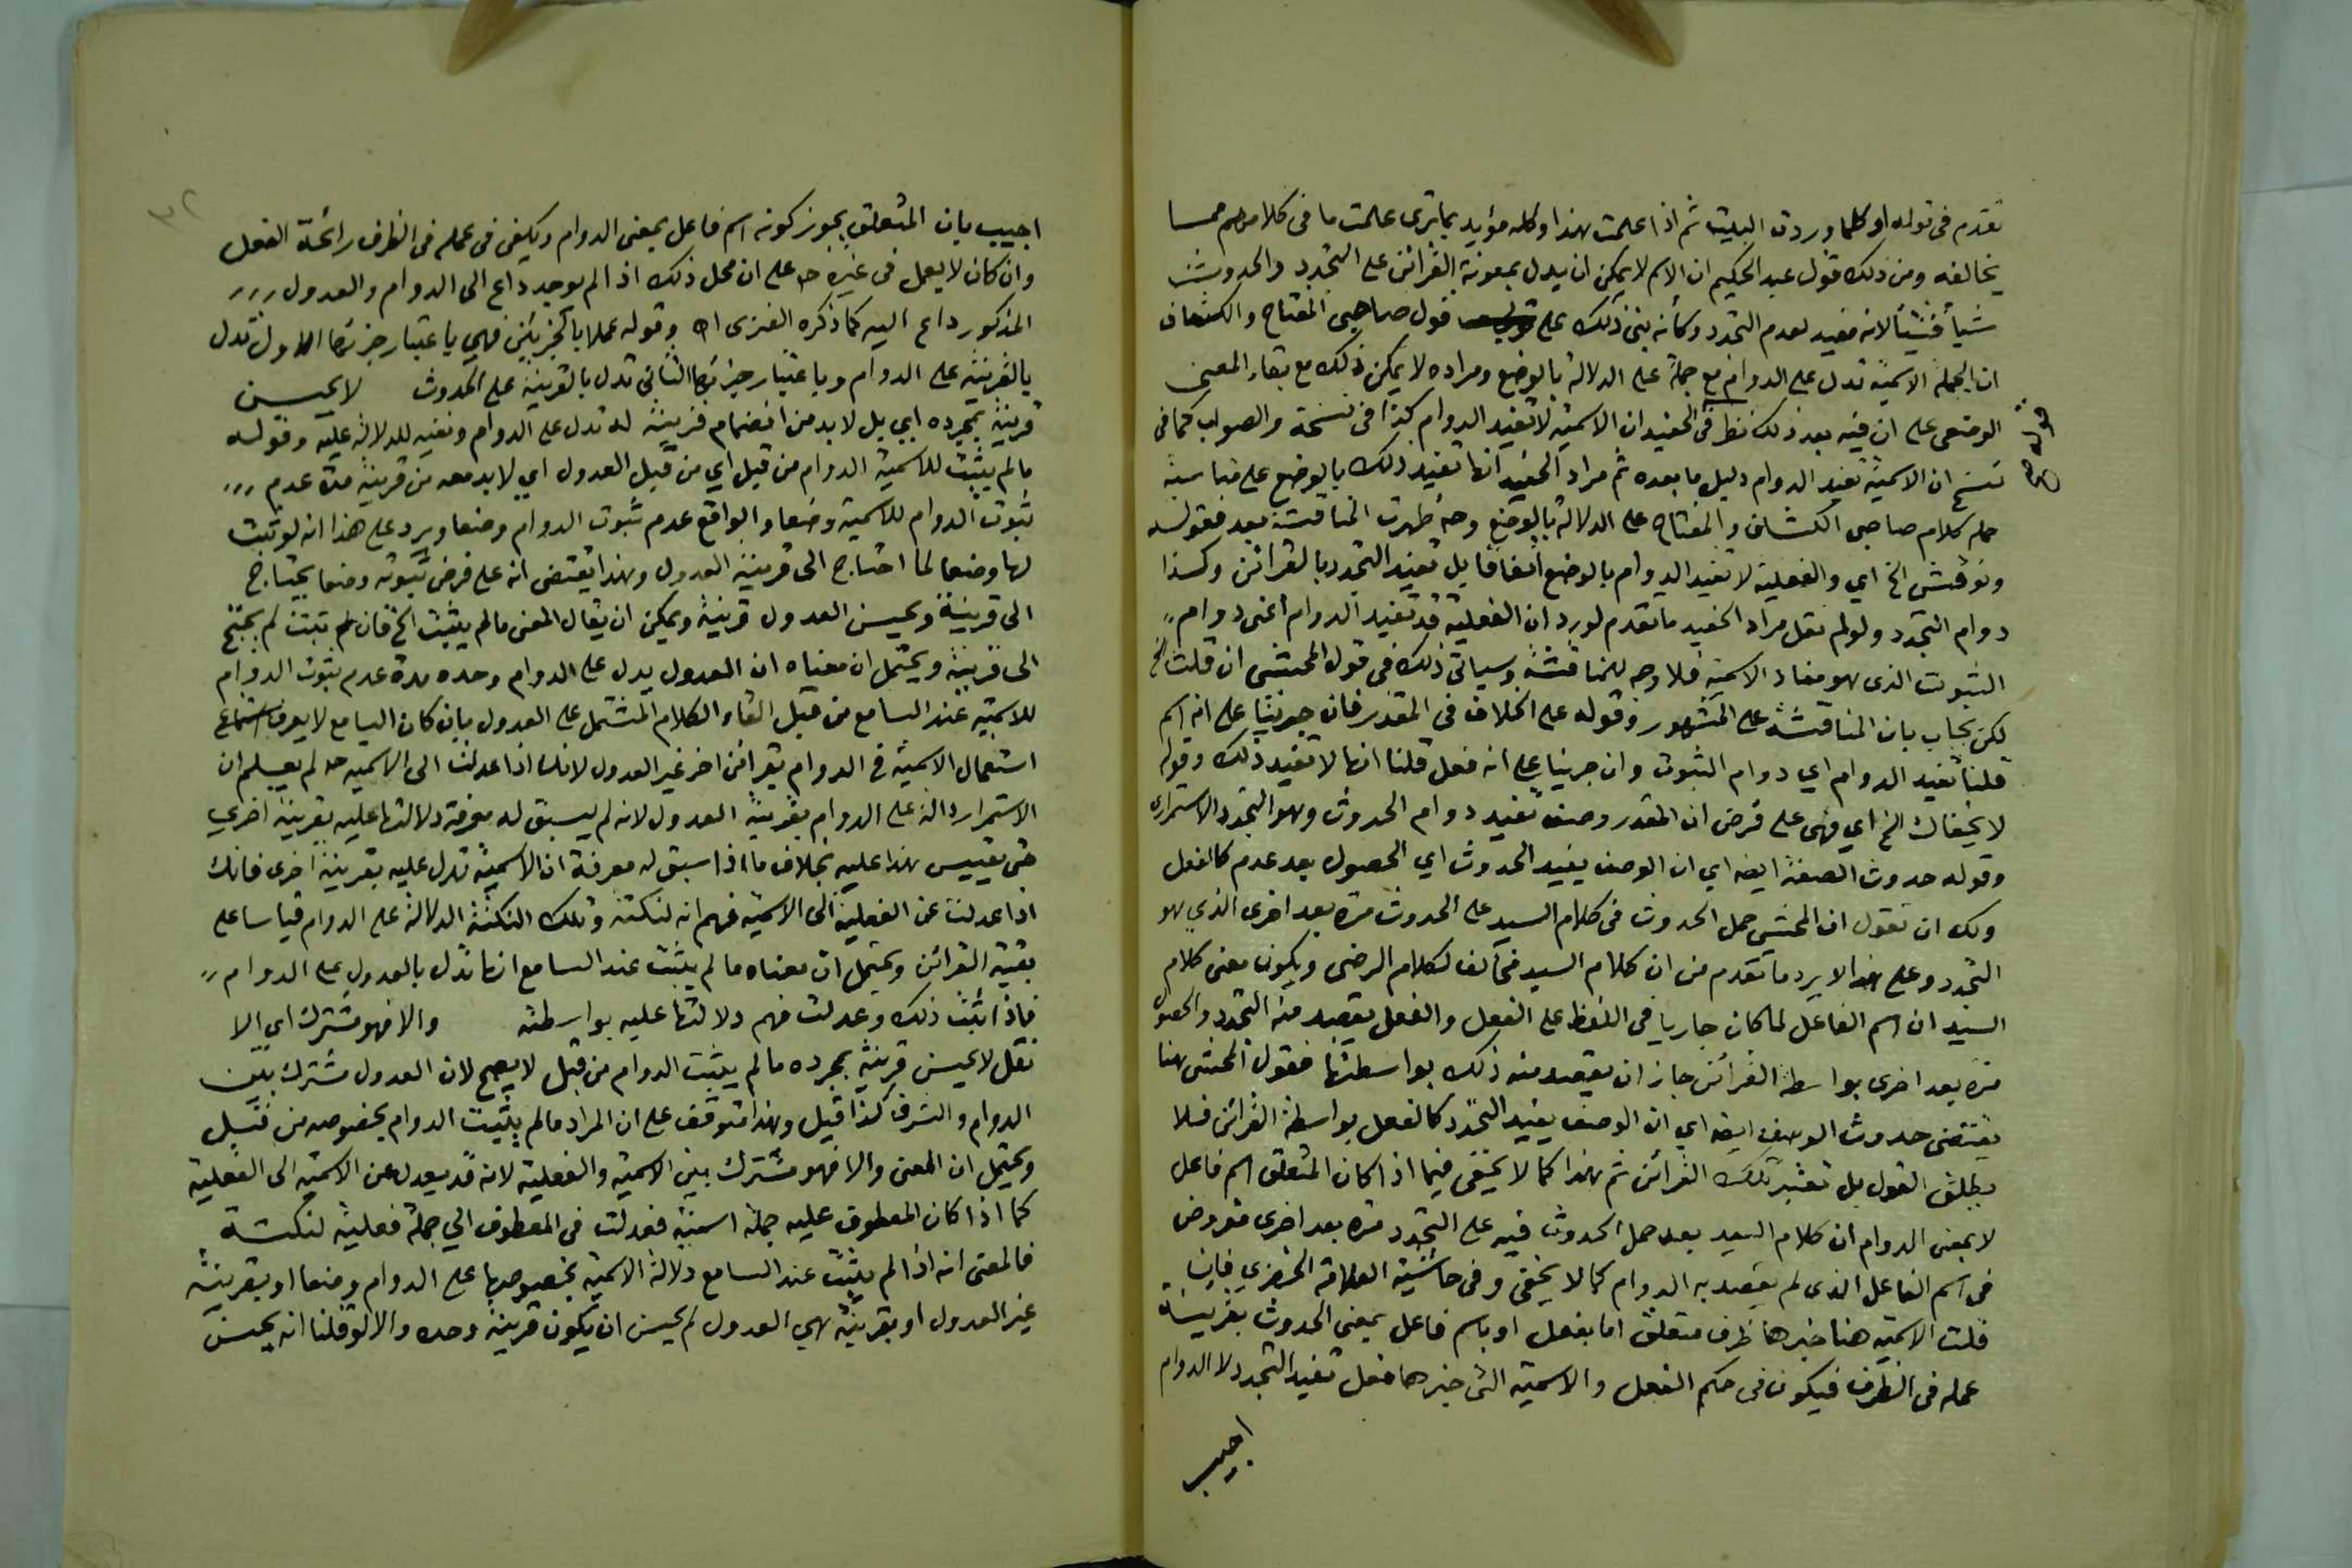 تقدم في قوله او كلما وردت البيت ثم اذا علمت هذا وكله مؤيد بما ترى علمت ما في كلامهم مما
يخالفه ومن ذلك قول عبد الحكيم ان الاسم لا يمكن ان يدل بمعونة القرائن على التجدد والحدوث
شيأ فشيأ لانه مفيد لعدم التجدد وكأنه بنى ذلك على قول صاحبي المفتاح والكشاف
ان الجملة الاسمية تدل على الدوام مع حمله على الدلالة بالوضع ومراده لا يمكن ذلك مع بقاء المعنى
الوضعى على ان فيه بعد ذلك نظر في الحفيد ان الاسمية لا تفيد الدوام كذا في نسخة والصواب كما في
قوله
نسخ ان الاسمية تفيد الدوام دليل ما بعده ثم مراد الحفيد انها تفيد ذلك بالوضع على مناسبة
حمله كلام صاحبي الكشاف والمفتاح على الدلالة بالوضع وحه ظهرت المناقشة بعد فقوله
ونوقش الخ اي والفعلية لا تفيد الدوام بالوضع اتفاقا بل تفيد التجدد بالقرائن وكذا
دوام التجدد ولو لم نقل مراد الحفيد ما تقدم لورد ان الفعلية قد تفيد الدوام اعنى دوام
الثبوت الذى هو مفاد الاسمية فلا وجه للمناقشة وسياتى ذلك في قول المحشى ان قلت الخ
لكن يجاب بان المناقشة على المشهور وقوله على الخلاف في المقدر فان جرينا على انه اسم
قلنا تفيد الدوام اي دوام الثبوت وان جرينا على انه فعل قلنا انها لا تفيد ذلك وقوله
لا يخفاك الخ اي فهى على فرض ان المقدر وصف تفيد دوام الحدوث وهو التجدد الاستمرارى
وقوله حدوث الصفة ايضه اي ان الوصف يفيد الحدوث اي الحصول بعد عدم كالفعل
ولك ان تقول ان المحشى حمل الحدوث في كلام السيد على الحدوث مرة بعد اخرى الذي هو
التجدد وعلى هذا لا يرد ما تقدم من ان كلام السيد مخالف لكلام الرضى ويكون معنى كلام
السيد ان اسم الفاعل لما كان جاريا في اللفظ على الفعل والفعل يقصد منه التجدد والحصول
مرة بعد اخرى بواسطة القرائن جاز ان يقصد منه ذلك بواسطتها فقول المحشى هنا
يقتضى حدوث الوصف ايضه اي ان الوصف يفيد التجدد كالفعل بواسطة القرائن فلا
يطلق القول بل تعتبر تلك القرائن ثم هذا كما لا يخفى فيما اذا كان المتعلق اسم فاعل
لا بمعنى الدوام ان كلام السيد بعد حمل الحدوث فيه على التجدد مرة بعد اخرى مفروض
في اسم الفاعل الذى لم يقصد به الدوام كما لا يخفى وفى حاشية العلامة الخضري فان
قلت الاسمية هنا خبرها ظرف متعلق اما بفعل او باسم فاعل بمعنى الحدوث بقرينة
عمله في الظرف فيكون في حكم الفعل والاسمية التى خبرها فعل تفيد التجدد لا الدوام
اجيب
٣٢
اجيب بان المتعلق يجوز كونه اسم فاعل بمعنى الدوام ويكفى في عمله في الظرف رائحة الفعل
وان كان لا يعمل في غيره حه على ان محل ذلك اذا لم يوجد داع الى الدوام والعدول
المذكور داع اليه كما ذكره الغنزى اه وقوله عملا بالجزئين فهي باعتبار جزئها الاول تدل
بالقرينة على الدوام وباعتبار جزئها الثانى تدل بالقرينة على الحدوث لا يحسن
قرينة بمجرده اي بل لا بد من انضمام قرينة له تدل على الدوام ونفيه للدلالة عليه وقوله
ما لم يثبت للاسمية الدوام من قبل اي من قبل العدول اي لا بد معه من قرينة مدة عدم
ثبوت الدوام للاسمية وضعا والواقع عدم ثبوت الدوام وضعا ويرد على هذا انه لو ثبت
لها وضعا لما احتاج الى قرينة العدول وهذا يقتضى انه على فرض ثبوته وضعا يحتاج
الى قرينة ويحسن العدول قرينة ويمكن ان يقال المعنى ما لم يثبت الخ فان ثبت لم يحتج
الى قرينة ويحتمل ان معناه ان العدول يدل على الدوام وحده مدة عدم ثبوت الدوام
للاسمية عند السامع من قبل القاء الكلام المشتمل على العدول بان كان السامع لا يعرف
استعمال الاسمية في الدوام بقرائن اخر غير العدول لانك اذا عدلت الى الاسمية حه لم يعلم ان
الاستمرار دالة على الدوام بقرينة العدول لانه لم يسبق له معرفة دلالتها عليه بقرينة اخرى
حتى يقيس هذا عليه بخلاف ما اذا سبق له معرفة ان الاسمية تدل عليه بقرينة اخرى فانك
اذا عدلت عن الفعلية الى الاسمية فهم انه لنكتة وتلك النكتة الدلالة على الدوام قياسا على
بقية القرائن ويحتمل ان معناه ما لم يثبت عند السامع انها تدل بالعدول على الدوام
فاذا ثبت ذلك وعدلت فهم دلالتها عليه بواسطته والا فهو مشترك اي الا
نقل لا يحسن قرينة بمجرده ما لم يثبت الدوام من قبل لا يصح لان العدول مشترك بين
الدوام والشرف كذا قيل وهذا متوقف على ان المراد ما لم يثبت الدوام بخصوصه من قبل
ويحتمل ان المعنى والا فهو مشترك بين الاسمية والفعلية لانه قد يعدل عن الاسمية الى الفعلية
كما اذا كان المعطوف عليه جملة اسمية فعدلت في المعطوف الي جملة فعلية لنكتة
فالمعنى انه اذا لم يثبت عند السامع دلالة الاسمية بخصوصها على الدوام وضعا او بقرينة
غير العدول او بقرينة هي العدول لم يحسن ان يكون قرينة وحده والا لو قلنا انه يحسن